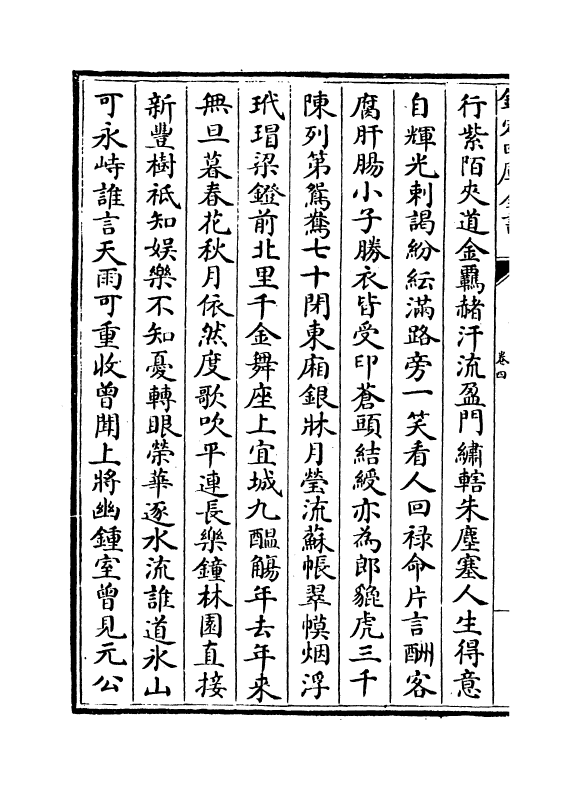 欽定四庫全書
卷四
行紫陌夾道金羈赭汗流盈門繡轄朱塵塞人生得意
自輝光刺謁紛紜滿路旁一笑看人回祿命片言酬客
腐肝腸小子勝衣皆受印蒼頭結綬亦為郎貔虎三千
陳列第鴛鴦七十閉東廂銀牀月瑩流蘇帳翠幙烟浮
玳瑁梁鐙前北里千金舞座上宜城九醖觴年去年來
無旦暮春花秋月依然度歌吹平連長樂鐘林園直接
新豐樹祗知娱樂不知憂轉眼榮華逐水流誰道氷山
可永峙誰言天雨可重收曾聞上將幽鍾室曾見元公